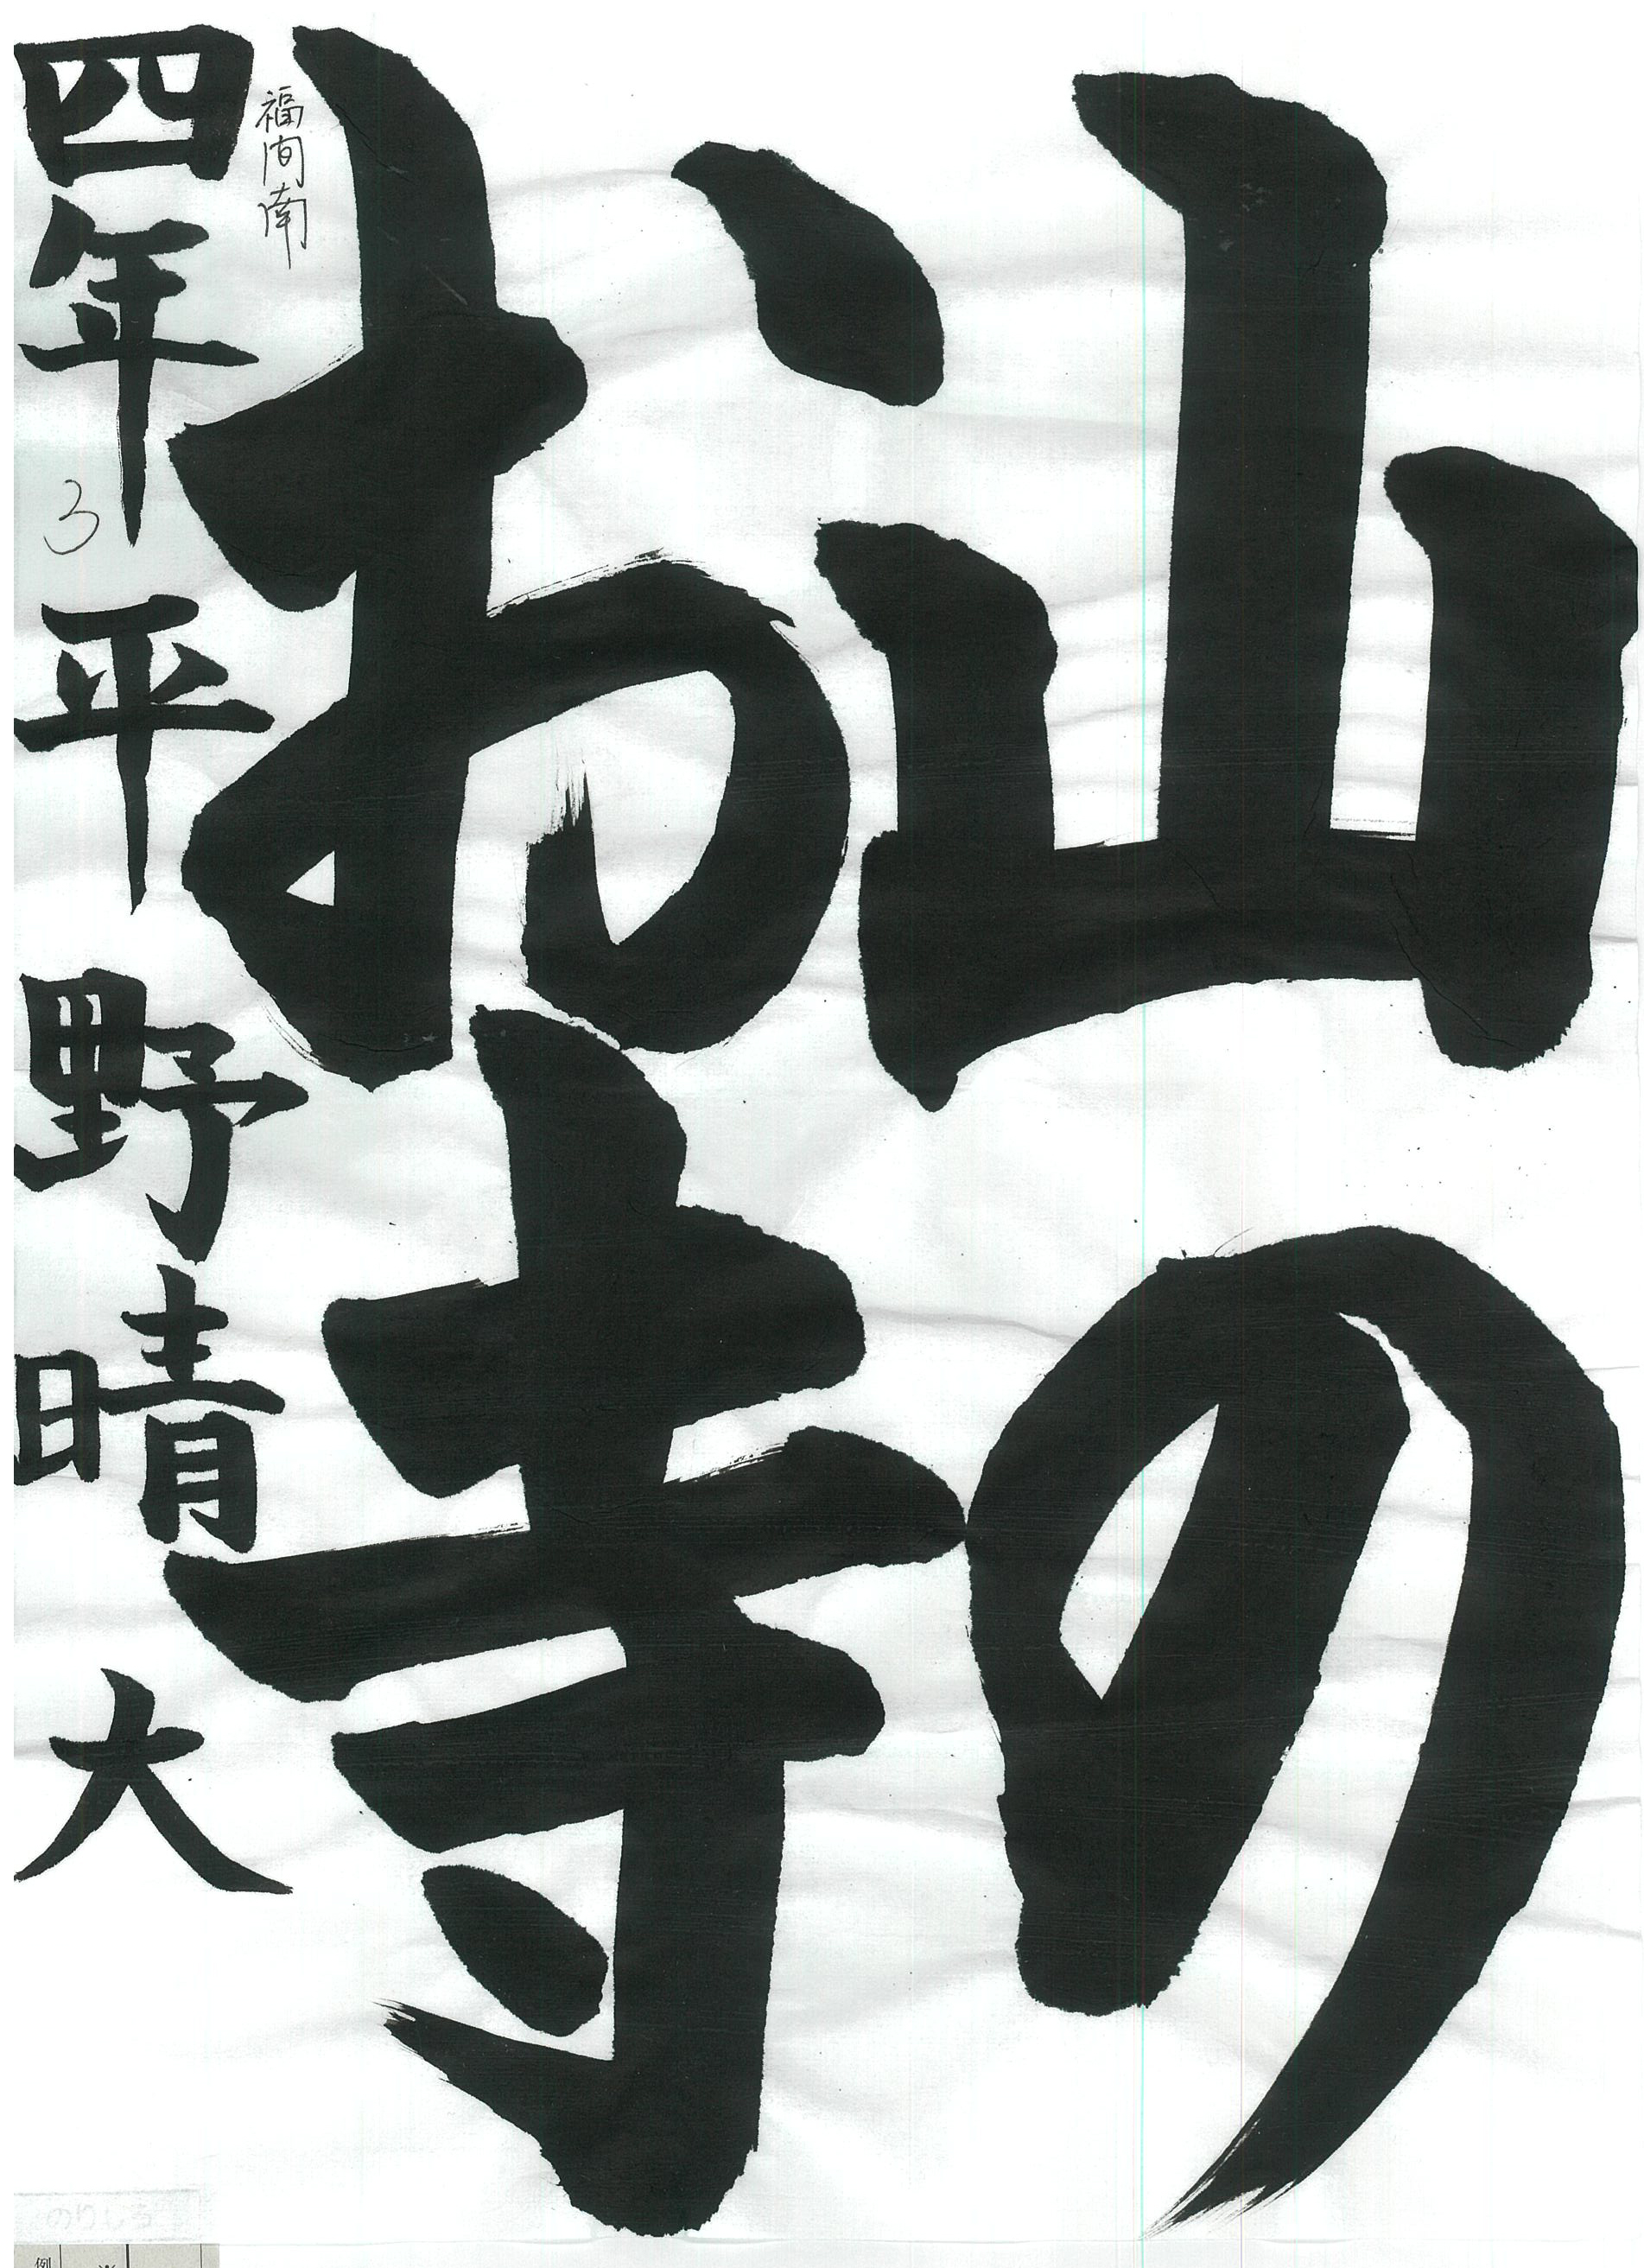 山の
お寺
福間南
四年平野晴大
3
のりしろ
例